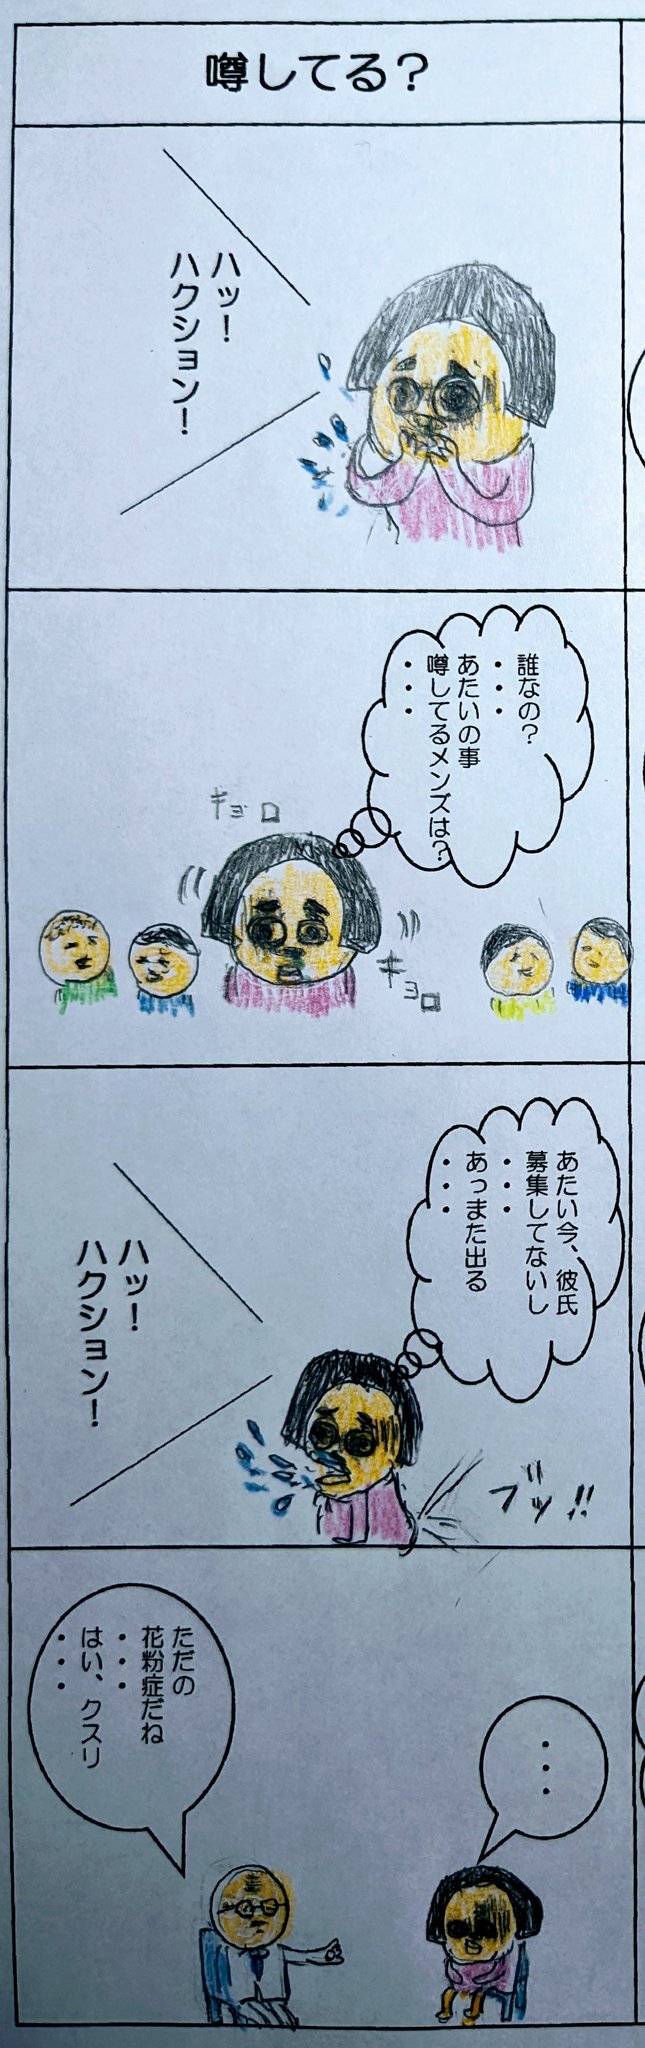 噂してる？
ハッ！
ハクション！
誰なの？
・・・
あたいの事
噂してるメンズは？
・・・
キョロ
キョロ
あたい今、彼氏
募集してないし
・・・
あっまた出る
・・・
ハッ！
ハクション！
ブッ!!
・・・
ただの
花粉症だね
・・・
はい、クスリ
・・・